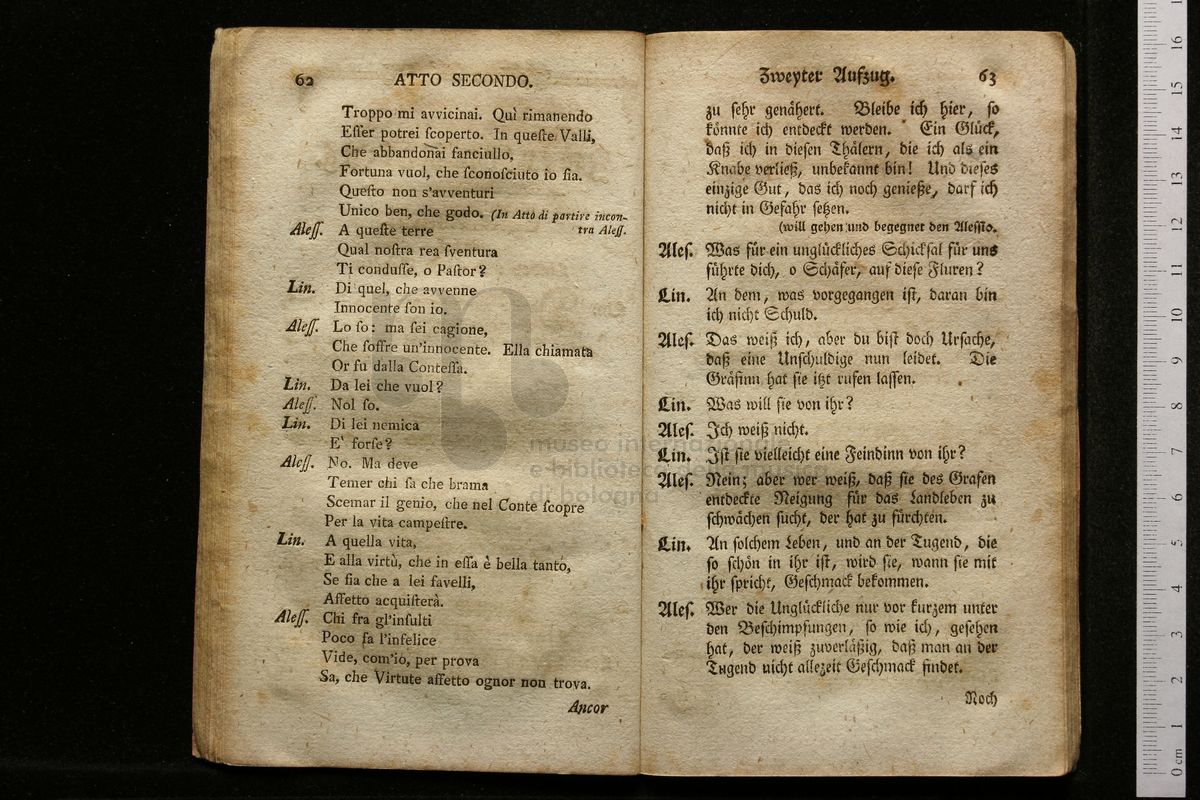 62 ATTO SECONDO.
Troppo mi avvicinai. Quì rimanendo
Eſſer potrei ſcoperto. In queſte Valli,
Che abbandonai fanciullo,
Fortuna vuol, che ſconoſciuto io ſia.
Queſto non s'avventuri
Unico ben, che godo. (In Atto di partire incon-
tra Aleſſ.
Aleſſ. A queſte terre
Qual noſtra rea ſventura
Ti conduſſe, o Paſtor?
Lin. Di quel, che avvenne
Innocente ſon io.
Aleſſ. Lo ſo: ma ſei cagione,
Che ſoffre un'innocente. Ella chiamata
Or fu dalla Conteſſa.
Lin. Da lei che vuol?
Aleſſ. Nol ſo.
Lin. Di lei nemica
E' forſe?
Aleſſ. No. Ma deve
Temer chi ſa che brama
Scemar il genio, che nel Conte ſcopre
Per la vita campeſtre.
Lin. A quella vita,
E alla virtù, che in eſſa è bella tanto,
Se ſia che a lei favelli,
Affetto acquiſterà.
Aleſſ. Chi fra gl'inſulti
Poco fa l'infelice
Vide, com'io, per prova
Sa, che Virtute affetto ognor non trova.
Ancor
Zweyter Aufzug. 63
zu ſehr genähert. Bleibe ich hier, ſo
könnte ich entdeckt werden. Ein Glück,
daß ich in dieſen Thälern, die ich als ein
Knabe verließ, unbekannt bin! Und dieſes
einzige Gut, das ich noch genieße, darf ich
nicht in Gefahr ſetzen.
(will gehen und begegnet den Aleſſio.
Aleſ. Was für ein unglückliches Schickſal für uns
führte dich, o Schäfer, auf dieſe Fluren?
Lin. An dem, was vorgegangen iſt, daran bin
ich nicht Schuld.
Aleſ. Das weiß ich, aber du biſt doch Urſache,
daß eine Unſchuldige nun leidet. Die
Gräfinn hat ſie itzt rufen laſſen.
Lin. Was will ſie von ihr?
Aleſ. Ich weiß nicht.
Lin. Iſt ſie vielleicht eine Feindinn von ihr?
Aleſ. Nein; aber wer weiß, daß ſie des Grafen
entdeckte Neigung für das Landleben zu
ſchwächen ſucht, der hat zu fürchten.
Lin. An ſolchem Leben, und an der Tugend, die
ſo ſchön in ihr iſt, wird ſie, wann ſie mit
ihr ſpricht, Geſchmack bekommen.
Aleſ. Wer die Unglückliche nur vor kurzem unter
den Beſchimpfungen, ſo wie ich, geſehen
hat, der weiß zuverläßig, daß man an der
Tugend uicht allezeit Geſchmack findet.
Noch
museo internazionale
e biblioteca della musica
di bologna
0 cm 1 2 3 4 5 6 7 8 9 10 11 12 13 14 15 16